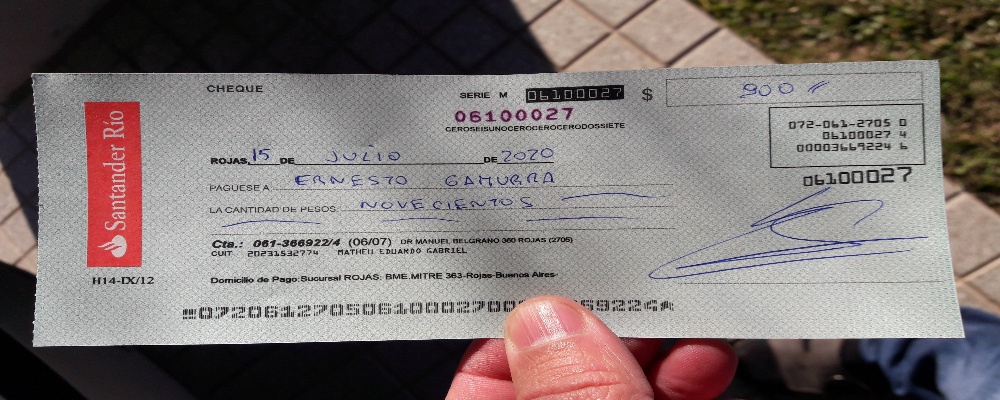 CHEQUE
SERIE M 06100027 $ 900
06100027
CEROSEISUNOCEROCEROCERODOSSIETE
072-061-2705 0
06100027 4
00003669224 6
06100027
ROJAS, 15 DE JULIO DE 2020
PAGUESE A ERNESTO GAMURRA
LA CANTIDAD DE PESOS NOVECIENTOS
Cta.: 061-366922/4 (06/07) DR MANUEL BELGRANO 360 ROJAS (2705)
CUIT 20231532774 MATHEU EDUARDO GABRIEL
Domicilio de Pago:Sucursal ROJAS: BME.MITRE 363-Rojas-Buenos Aires-
Santander Río
H14-IX/12